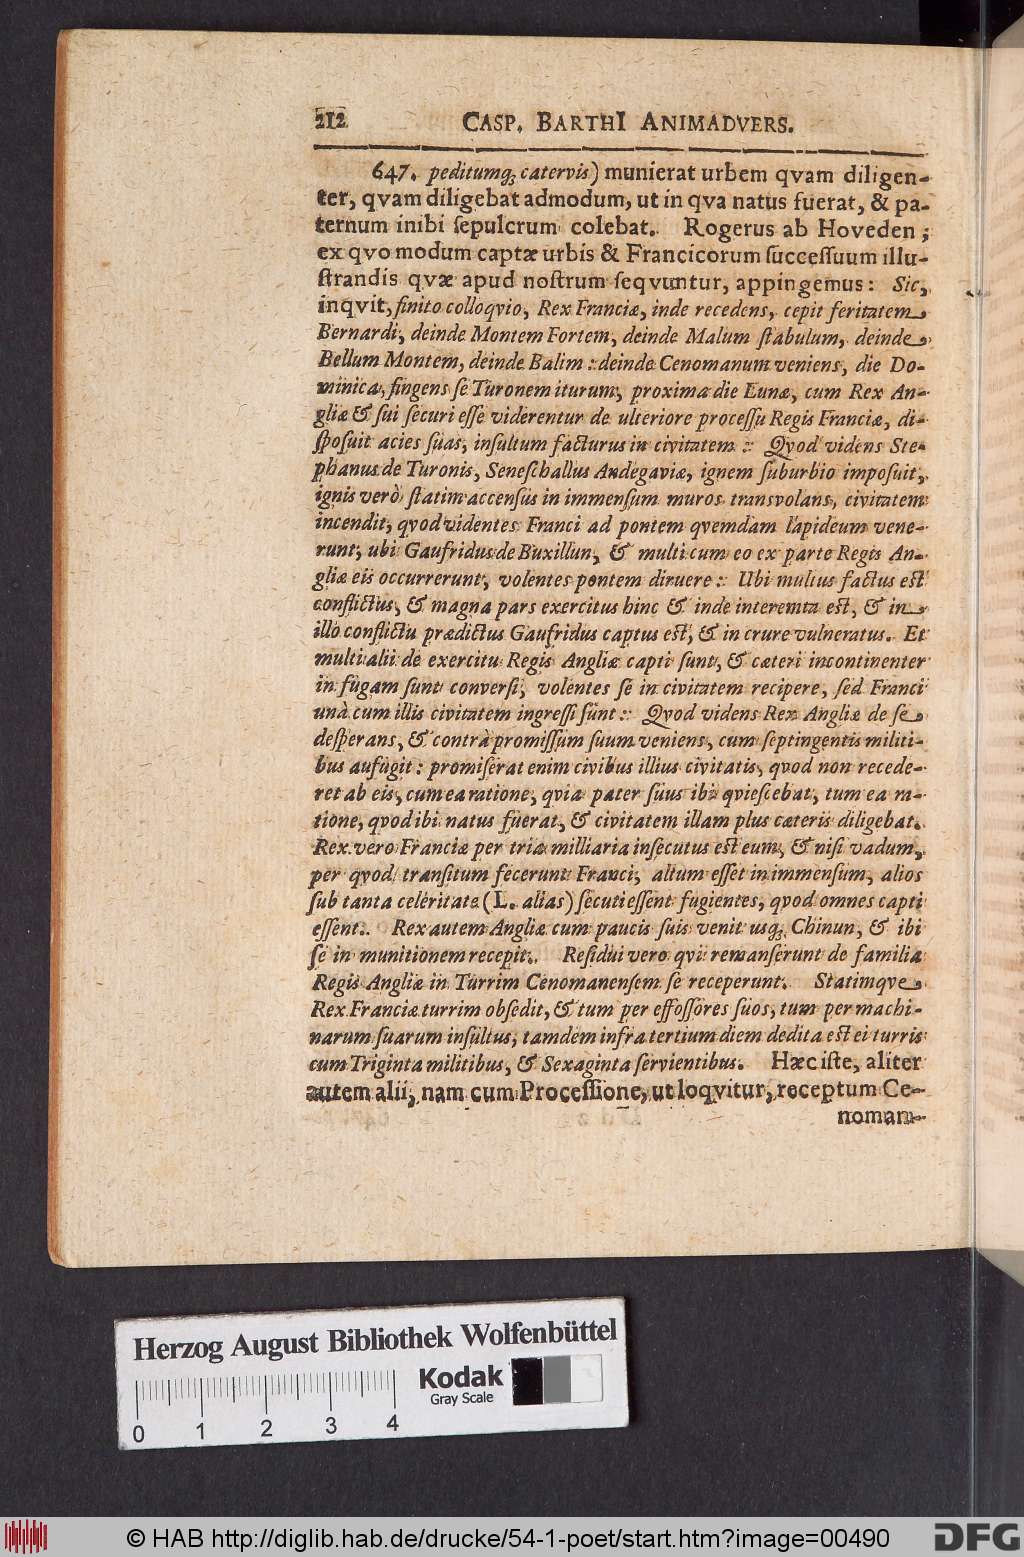 212 CASP. BARTHI ANIMADVERS.
647. peditumq; catervis) munierat urbem qvam diligen-
ter, qvam diligebat admodum, ut in qva natus fuerat, & pa-
ternum inibi sepulcrum colebat. Rogerus ab Hoveden;
ex qvo modum captæ urbis & Francicorum successuum illu-
strandis qvæ apud nostrum seqvuntur, appingemus: Sic,
inqvit, finito colloqvio, Rex Franciæ, inde recedens, cepit feritatem
Bernardi, deinde Montem Fortem, deinde Malum stabulum, deinde
Bellum Montem, deinde Balim: deinde Cenomanum veniens, die Do-
minica, fingens se Turonem iturum, proxima die Lunæ, cum Rex An-
gliæ & sui securi esse viderentur de ulteriore processu Regis Franciæ, di-
sposuit acies suas, insultum facturus in civitatem: Qvod videns Ste-
phanus de Turonis, Seneschallus Andegaviæ, ignem suburbio imposuit,
ignis verò statim accensus in immensum muros transvolans, civitatem
incendit, qvod videntes Franci ad pontem qvemdam lapideum vene-
runt, ubi Gaufridus de Buxillun, & multi cum eo ex parte Regis An-
gliæ eis occurrerunt, volentes pontem diruere: Ubi multus factus est
conflictus, & magna pars exercitus hinc & inde interemta est, & in
illo conflictu prædictus Gaufridus captus est, & in crure vulneratus. Et
multi alii de exercitu Regis Angliæ capti sunt, & cæteri incontinenter
in fugam sunt conversi, volentes se in civitatem recipere, sed Franci
unà cum illis civitatem ingressi sunt: Qvod videns Rex Angliæ de se
desperans, & contrà promissum suum veniens, cum septingentis militi-
bus aufugit: promiserat enim civibus illius civitatis, qvod non recede-
ret ab eis, cum ea ratione, qvia pater suus ibi qviescebat, tum ea ra-
tione, qvod ibi natus fuerat, & civitatem illam plus cæteris diligebat.
Rex vero Franciæ per tria milliaria insecutus est eum, & nisi vadum,
per qvod transitum fecerunt Franci, altum esset in immensum, alios
sub tanta celeritate (L. alias) secuti essent fugientes, qvod omnes capti
essent. Rex autem Angliæ cum paucis suis venit usq; Chinun, & ibi
se in munitionem recepit. Residui vero qvi remanserunt de familia
Regis Angliæ in Turrim Cenomanensem se receperunt. Statimqve
Rex Franciæ turrim obsedit, & tum per effossores suos, tum per machi-
narum suarum insultus, tamdem infra tertium diem dedita est ei turris
cum Triginta militibus, & Sexaginta servientibus. Hæc iste, aliter
autem alii, nam cum Processione, ut loqvitur, receptum Ce-
nomam-
Herzog August Bibliothek Wolfenbüttel
Kodak
Gray Scale
0 1 2 3 4
© HAB http://diglib.hab.de/drucke/54-1-poet/start.htm?image=00490
DFG